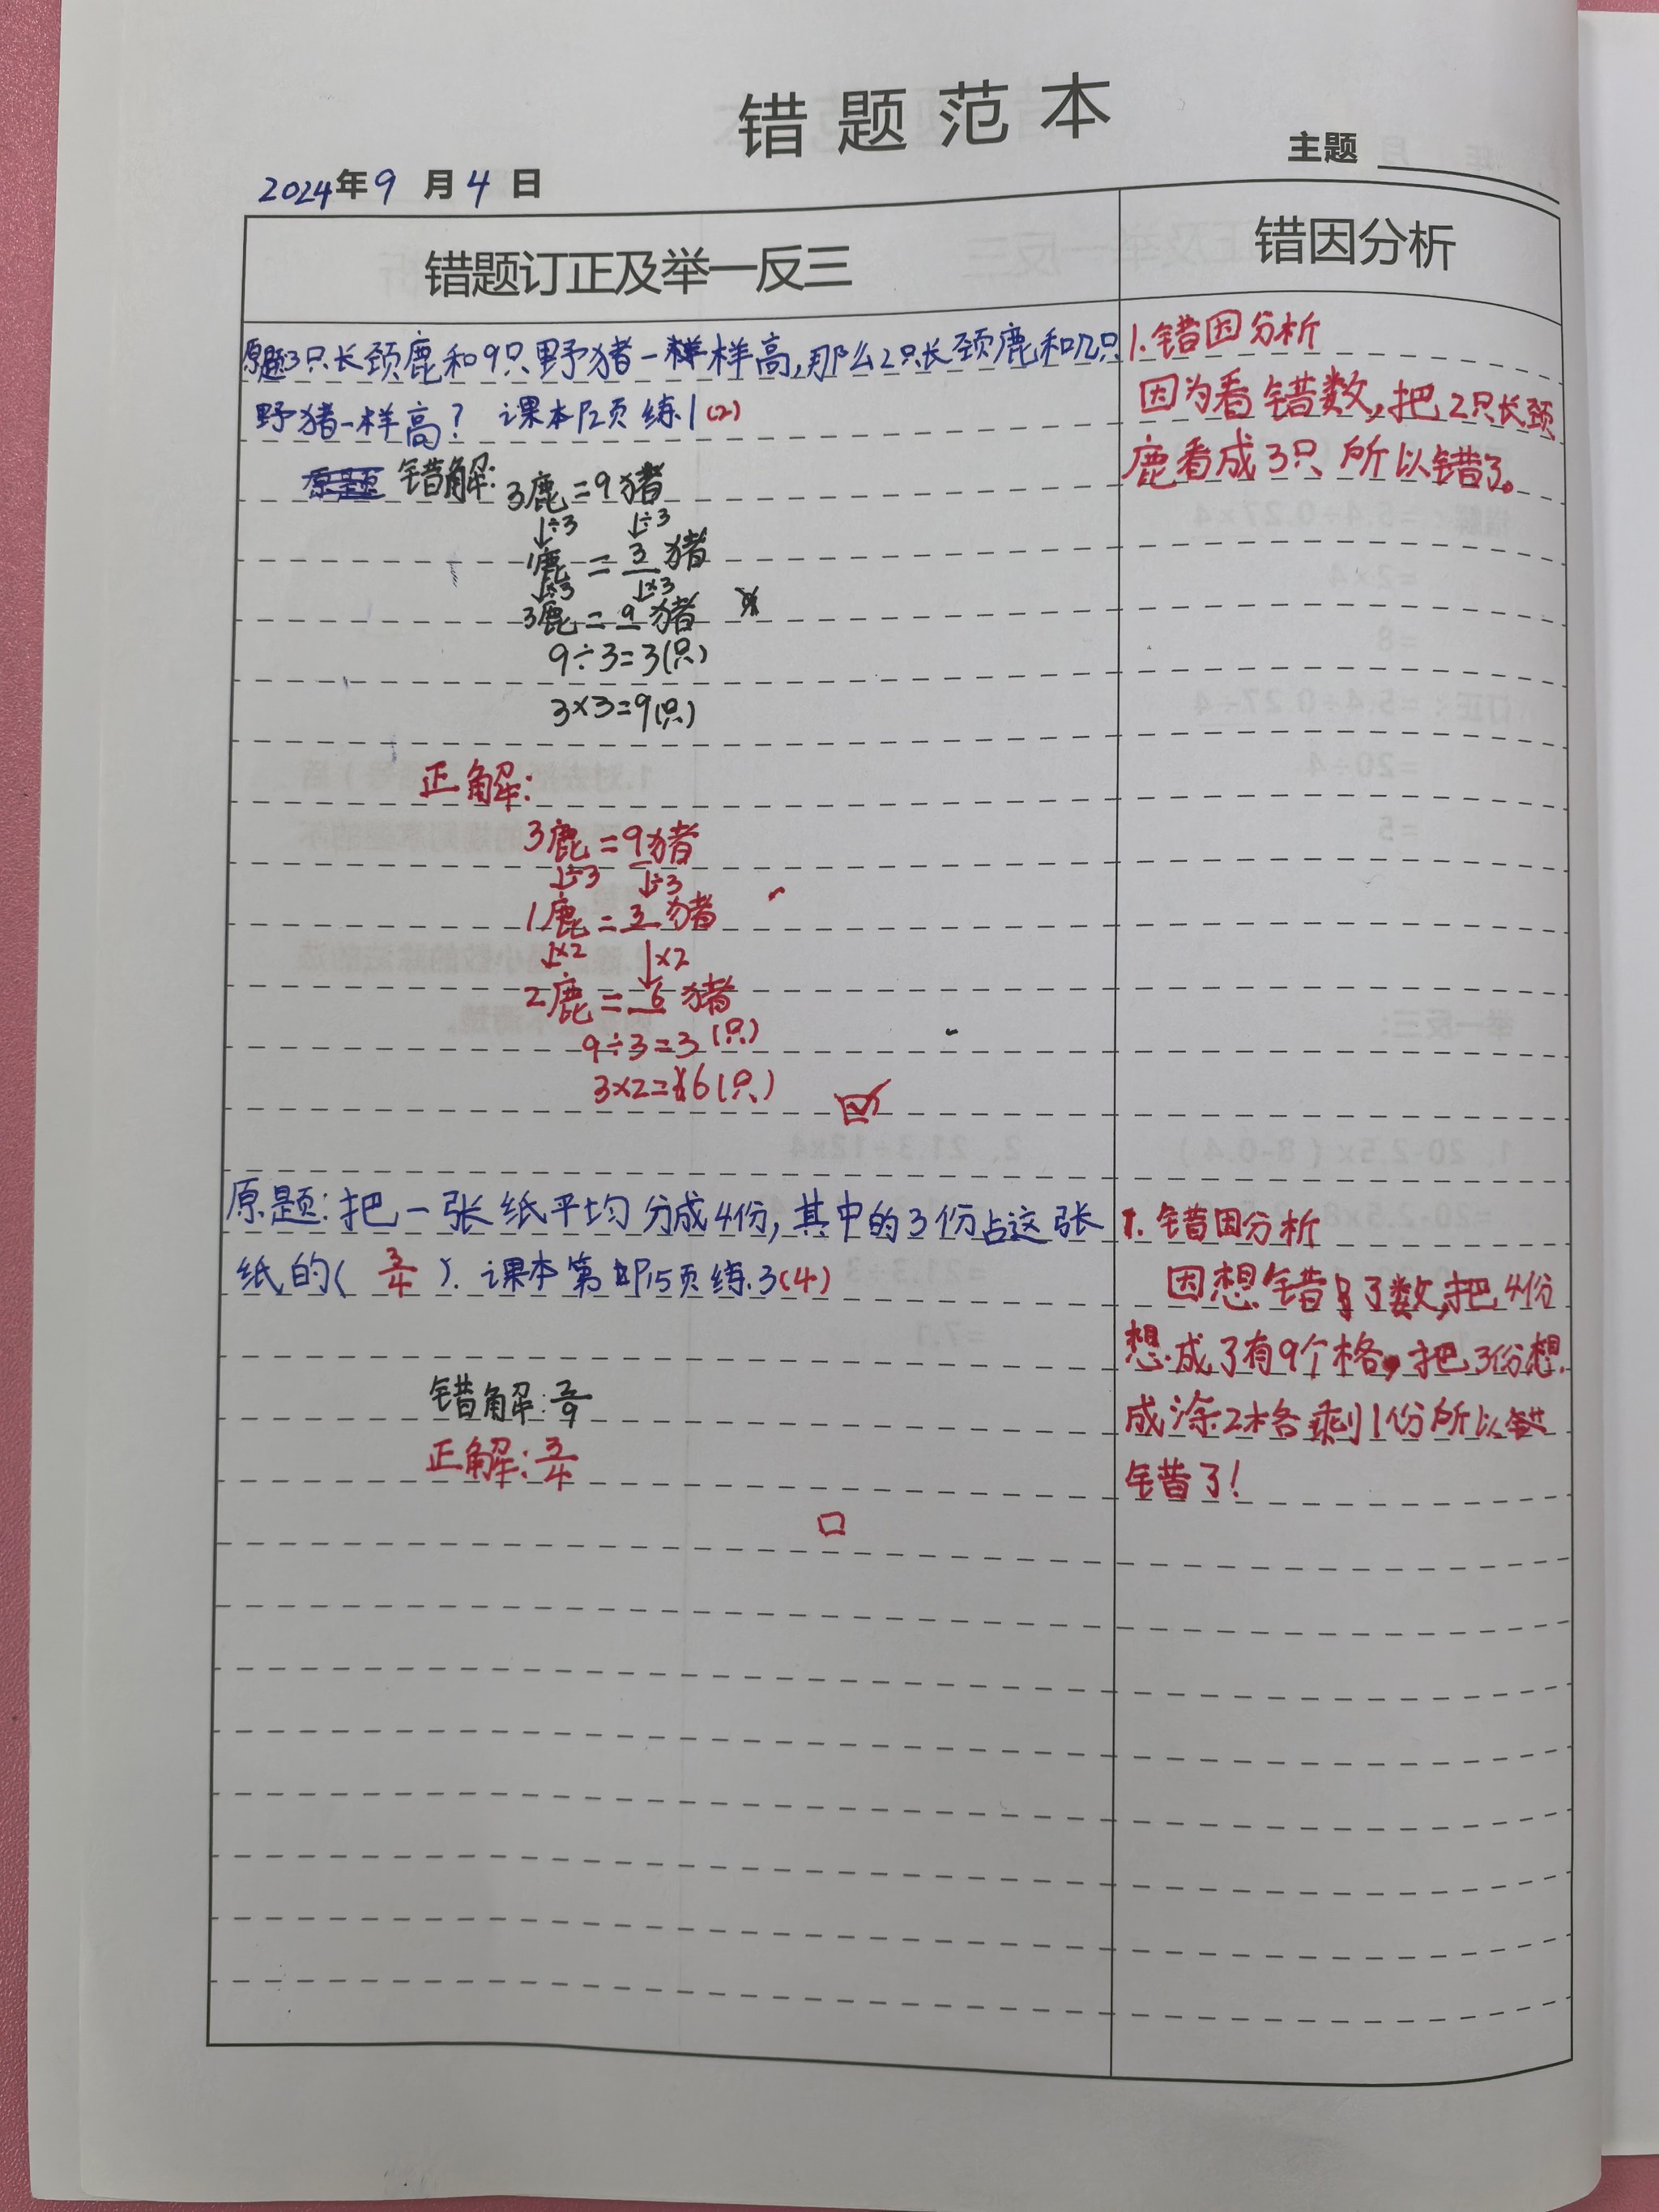 错题范本
主题
2024年9月4日
错题订正及举一反三
错因分析
原题3只长颈鹿和9只野猪一样样高,那么2只长颈鹿和几只
野猪一样高? 课本P2页 练1(2)
原题 错解:
3鹿=9猪
↓÷3 ↓÷3
1鹿=3猪
↓×3 ↓×3
3鹿=9猪
9÷3=3(只)
3×3=9(只)
正解:
3鹿=9猪
↓÷3 ↓÷3
1鹿=3猪
↓×2 ↓×2
2鹿=6猪
9÷3=3(只)
3×2=6(只)
1.错因分析
因为看错数,把2只长颈
鹿看成3只 所以错了。
原题:把一张纸平均分成4份,其中的3份占这张
纸的( 3/4 ). 课本第P15页练.3(4)
错解:2/9
正解:3/4
1.错因分析
因想错了数,把4份
想成了有9个格,把3份想
成涂2格剩1份所以错
错了!